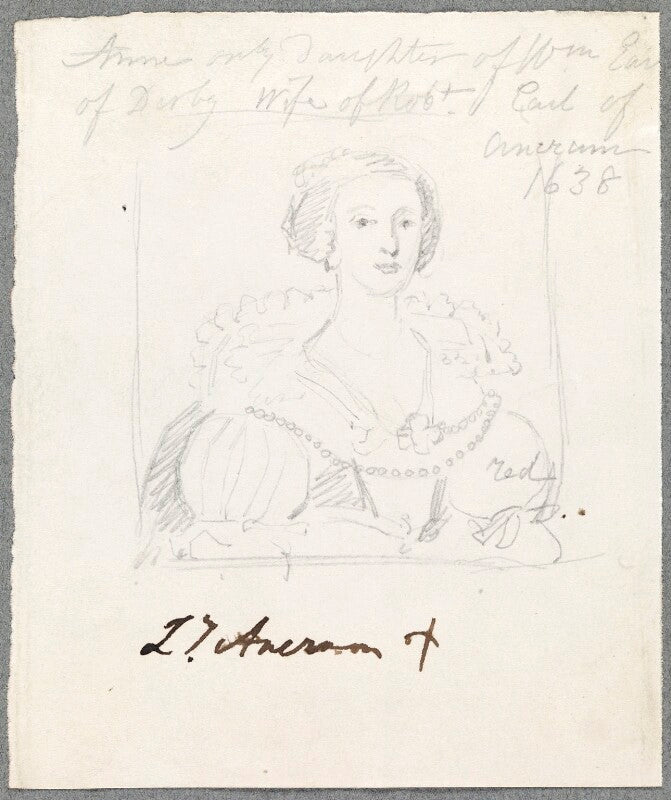 Anne only Daughter of Wm Earl
of Derby Wife of Robt. Earl of
Ancrum
1638
red
Ly Ancrum